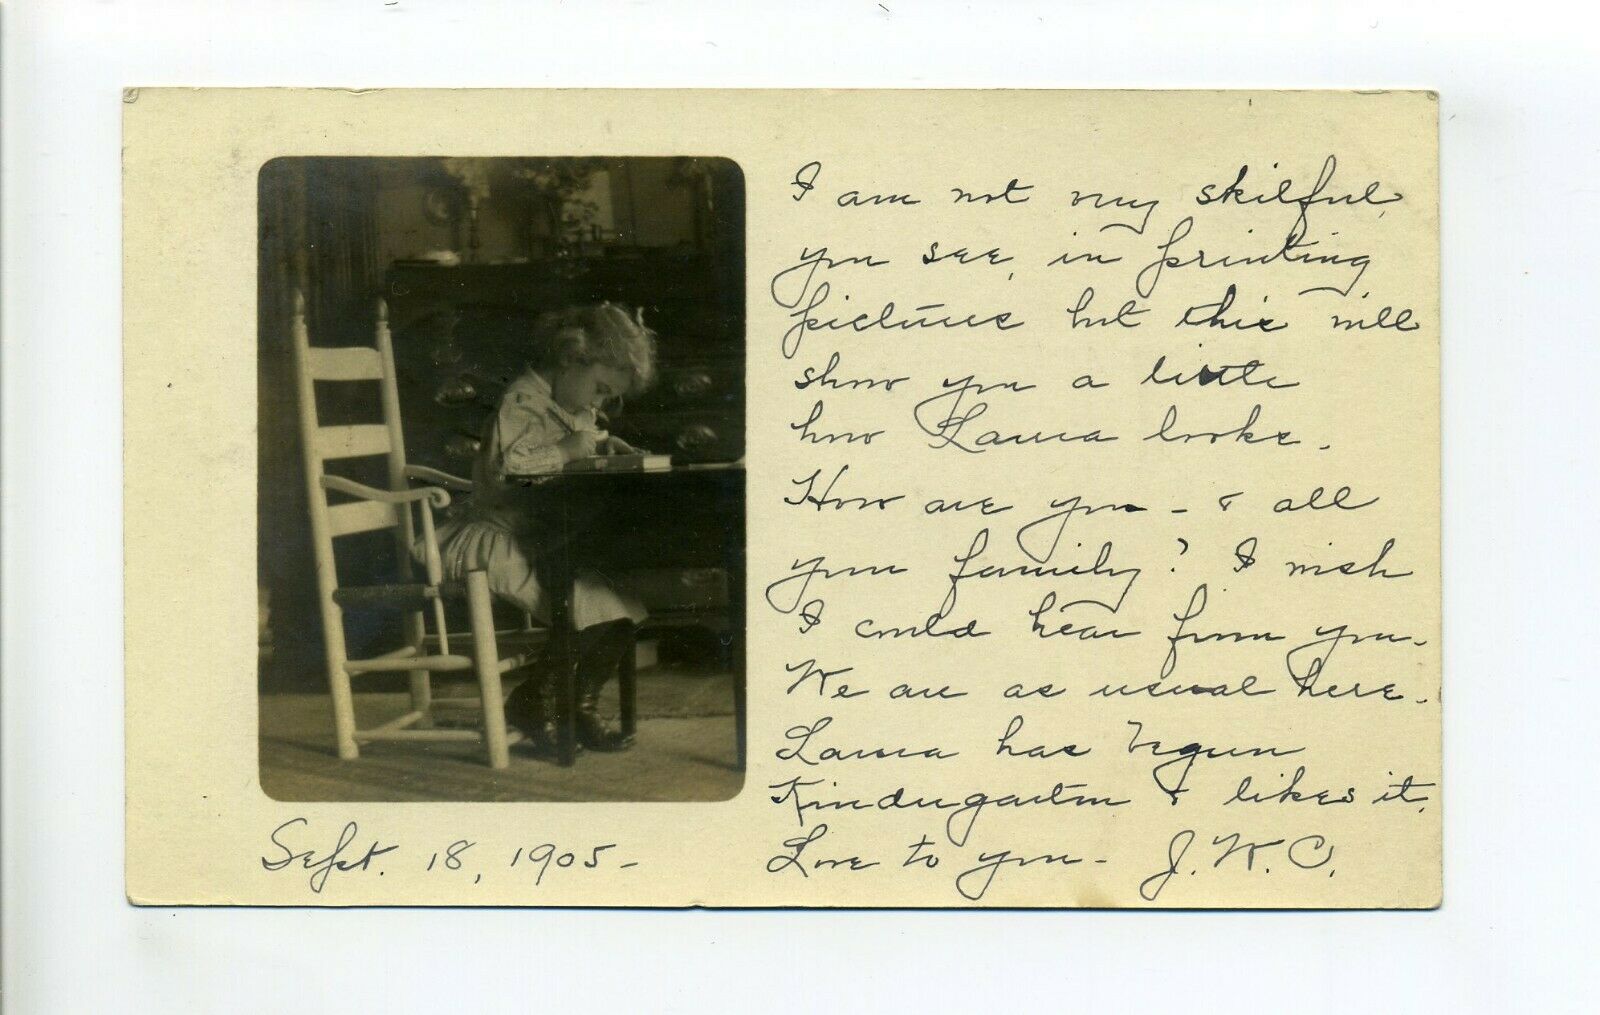 I am not very skilful,
you see, in printing
pictures but this will
show you a little
how Laura looks.
How are you - & all
your family? I wish
I could hear from you.
We are as usual here.
Laura has begun
Kindergarten & likes it.
Love to you - J. W. C.
Sept. 18, 1905 -